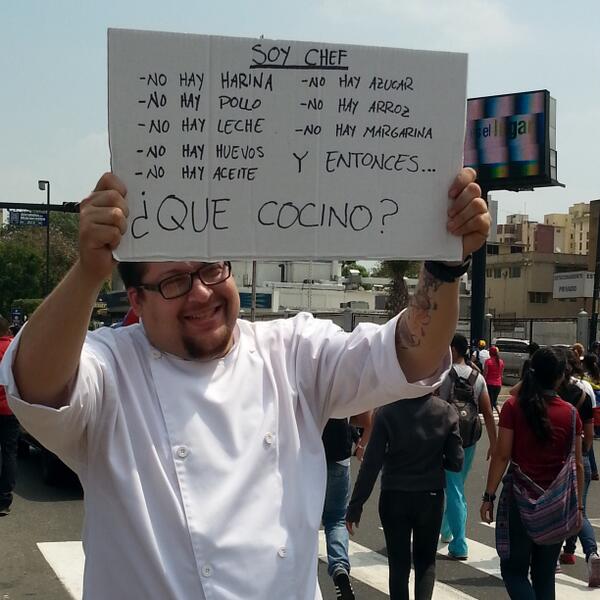 SOY CHEF
-NO HAY HARINA
-NO HAY POLLO
-NO HAY LECHE
-NO HAY HUEVOS
-NO HAY ACEITE
-NO HAY AZUCAR
-NO HAY ARROZ
-NO HAY MARGARINA
Y ENTONCES...
¿QUE COCINO?
es el lugar
PRIVADO